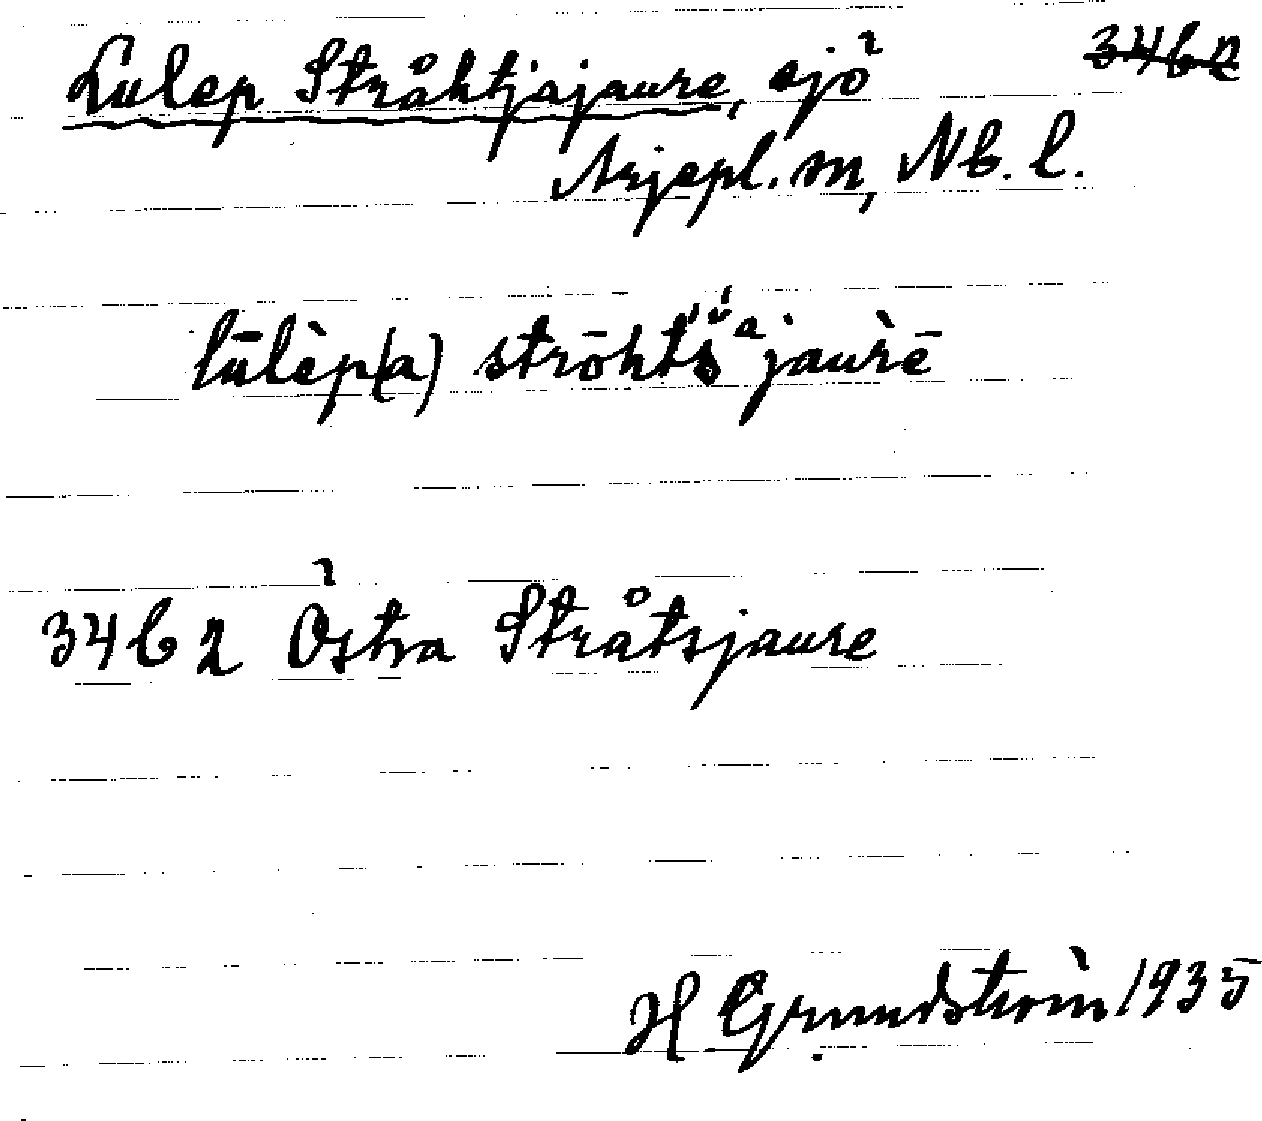 Lulep Stråhtjajaure, sjö 34b2
Arjepl. sn, Nb. l.
lūlèp(a) strōhtš́ᵃjaurē
34b2 Östra Stråtsjaure
H Grundström 1935